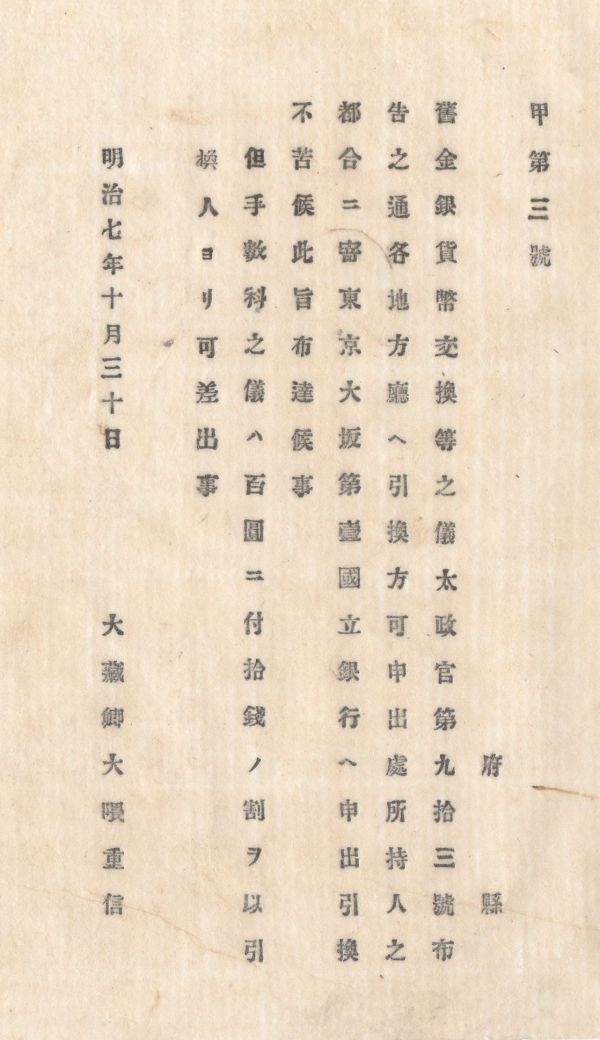 甲第三號
府縣
舊金銀貨幣交換等之儀太政官第九拾三號布
告之通各地方廳ヘ引換方可申出處所持人之
都合ニ寄東京大坂第壹國立銀行ヘ申出引換
不苦候此旨布達候事
但手數料之儀ハ百圓ニ付拾錢ノ割ヲ以引
換人ヨリ可差出事
明治七年十月三十日
大藏卿大隈重信